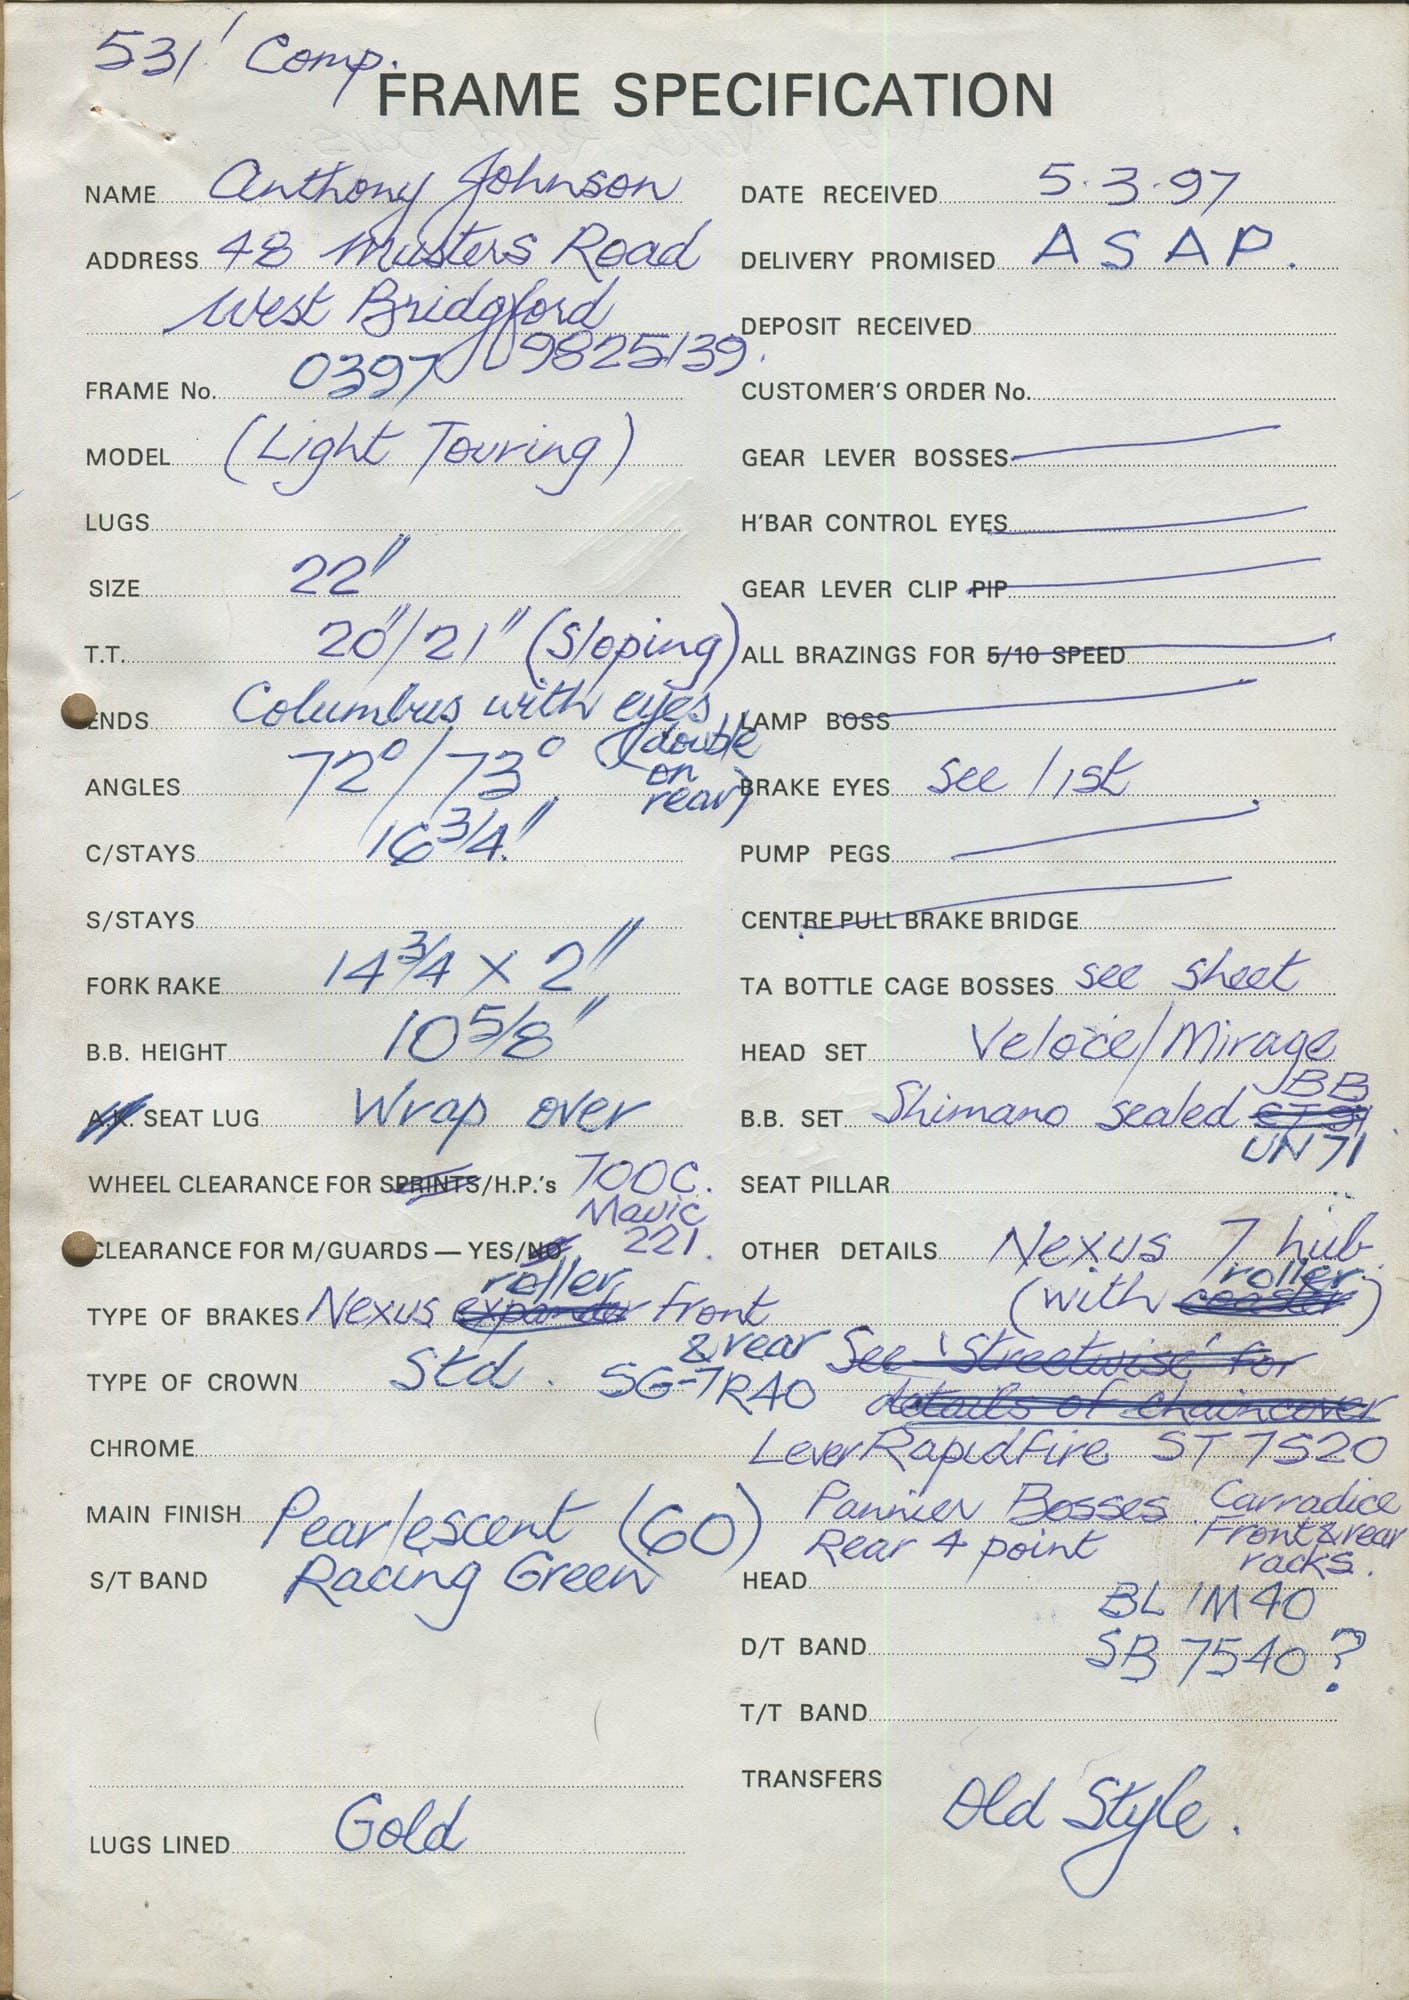 531 Comp.
FRAME SPECIFICATION
NAME Anthony Johnson
ADDRESS 48 Musters Road
West Bridgford
9825139.
FRAME No. 0397
MODEL (Light Touring)
LUGS
SIZE 22"
T.T. 20"/21" (Sloping)
ENDS Columbus with eyes
(double
on
rear)
ANGLES 72°/73°
C/STAYS 16 3/4"
S/STAYS
FORK RAKE 14 3/4 x 2"
B.B. HEIGHT 10 5/8"
A.K. SEAT LUG Wrap over
WHEEL CLEARANCE FOR SPRINTS/H.P.'s 700C.
Mavic
221.
CLEARANCE FOR M/GUARDS — YES/NO
roller
TYPE OF BRAKES Nexus expander front
& rear
TYPE OF CROWN Std. SG-7R40
CHROME
MAIN FINISH Pearlescent (60)
Racing Green
S/T BAND
LUGS LINED Gold
DATE RECEIVED 5.3.97
DELIVERY PROMISED ASAP.
DEPOSIT RECEIVED
CUSTOMER'S ORDER No.
GEAR LEVER BOSSES
H'BAR CONTROL EYES
GEAR LEVER CLIP PIP
ALL BRAZINGS FOR 5/10 SPEED
LAMP BOSS
BRAKE EYES See list
PUMP PEGS
CENTRE PULL BRAKE BRIDGE
TA BOTTLE CAGE BOSSES see sheet
HEAD SET Veloce/Mirage
B.B. SET Shimano sealed BB
UN71
SEAT PILLAR
OTHER DETAILS Nexus 7 hub
roller
(with coaster)
See 'Streetwise' for
details of chaincover
Lever Rapidfire ST 7S20
Pannier Bosses Carradice
Rear 4 point Front & rear
racks.
HEAD
BL IM40
D/T BAND SB 7S40?
T/T BAND
TRANSFERS Old Style.